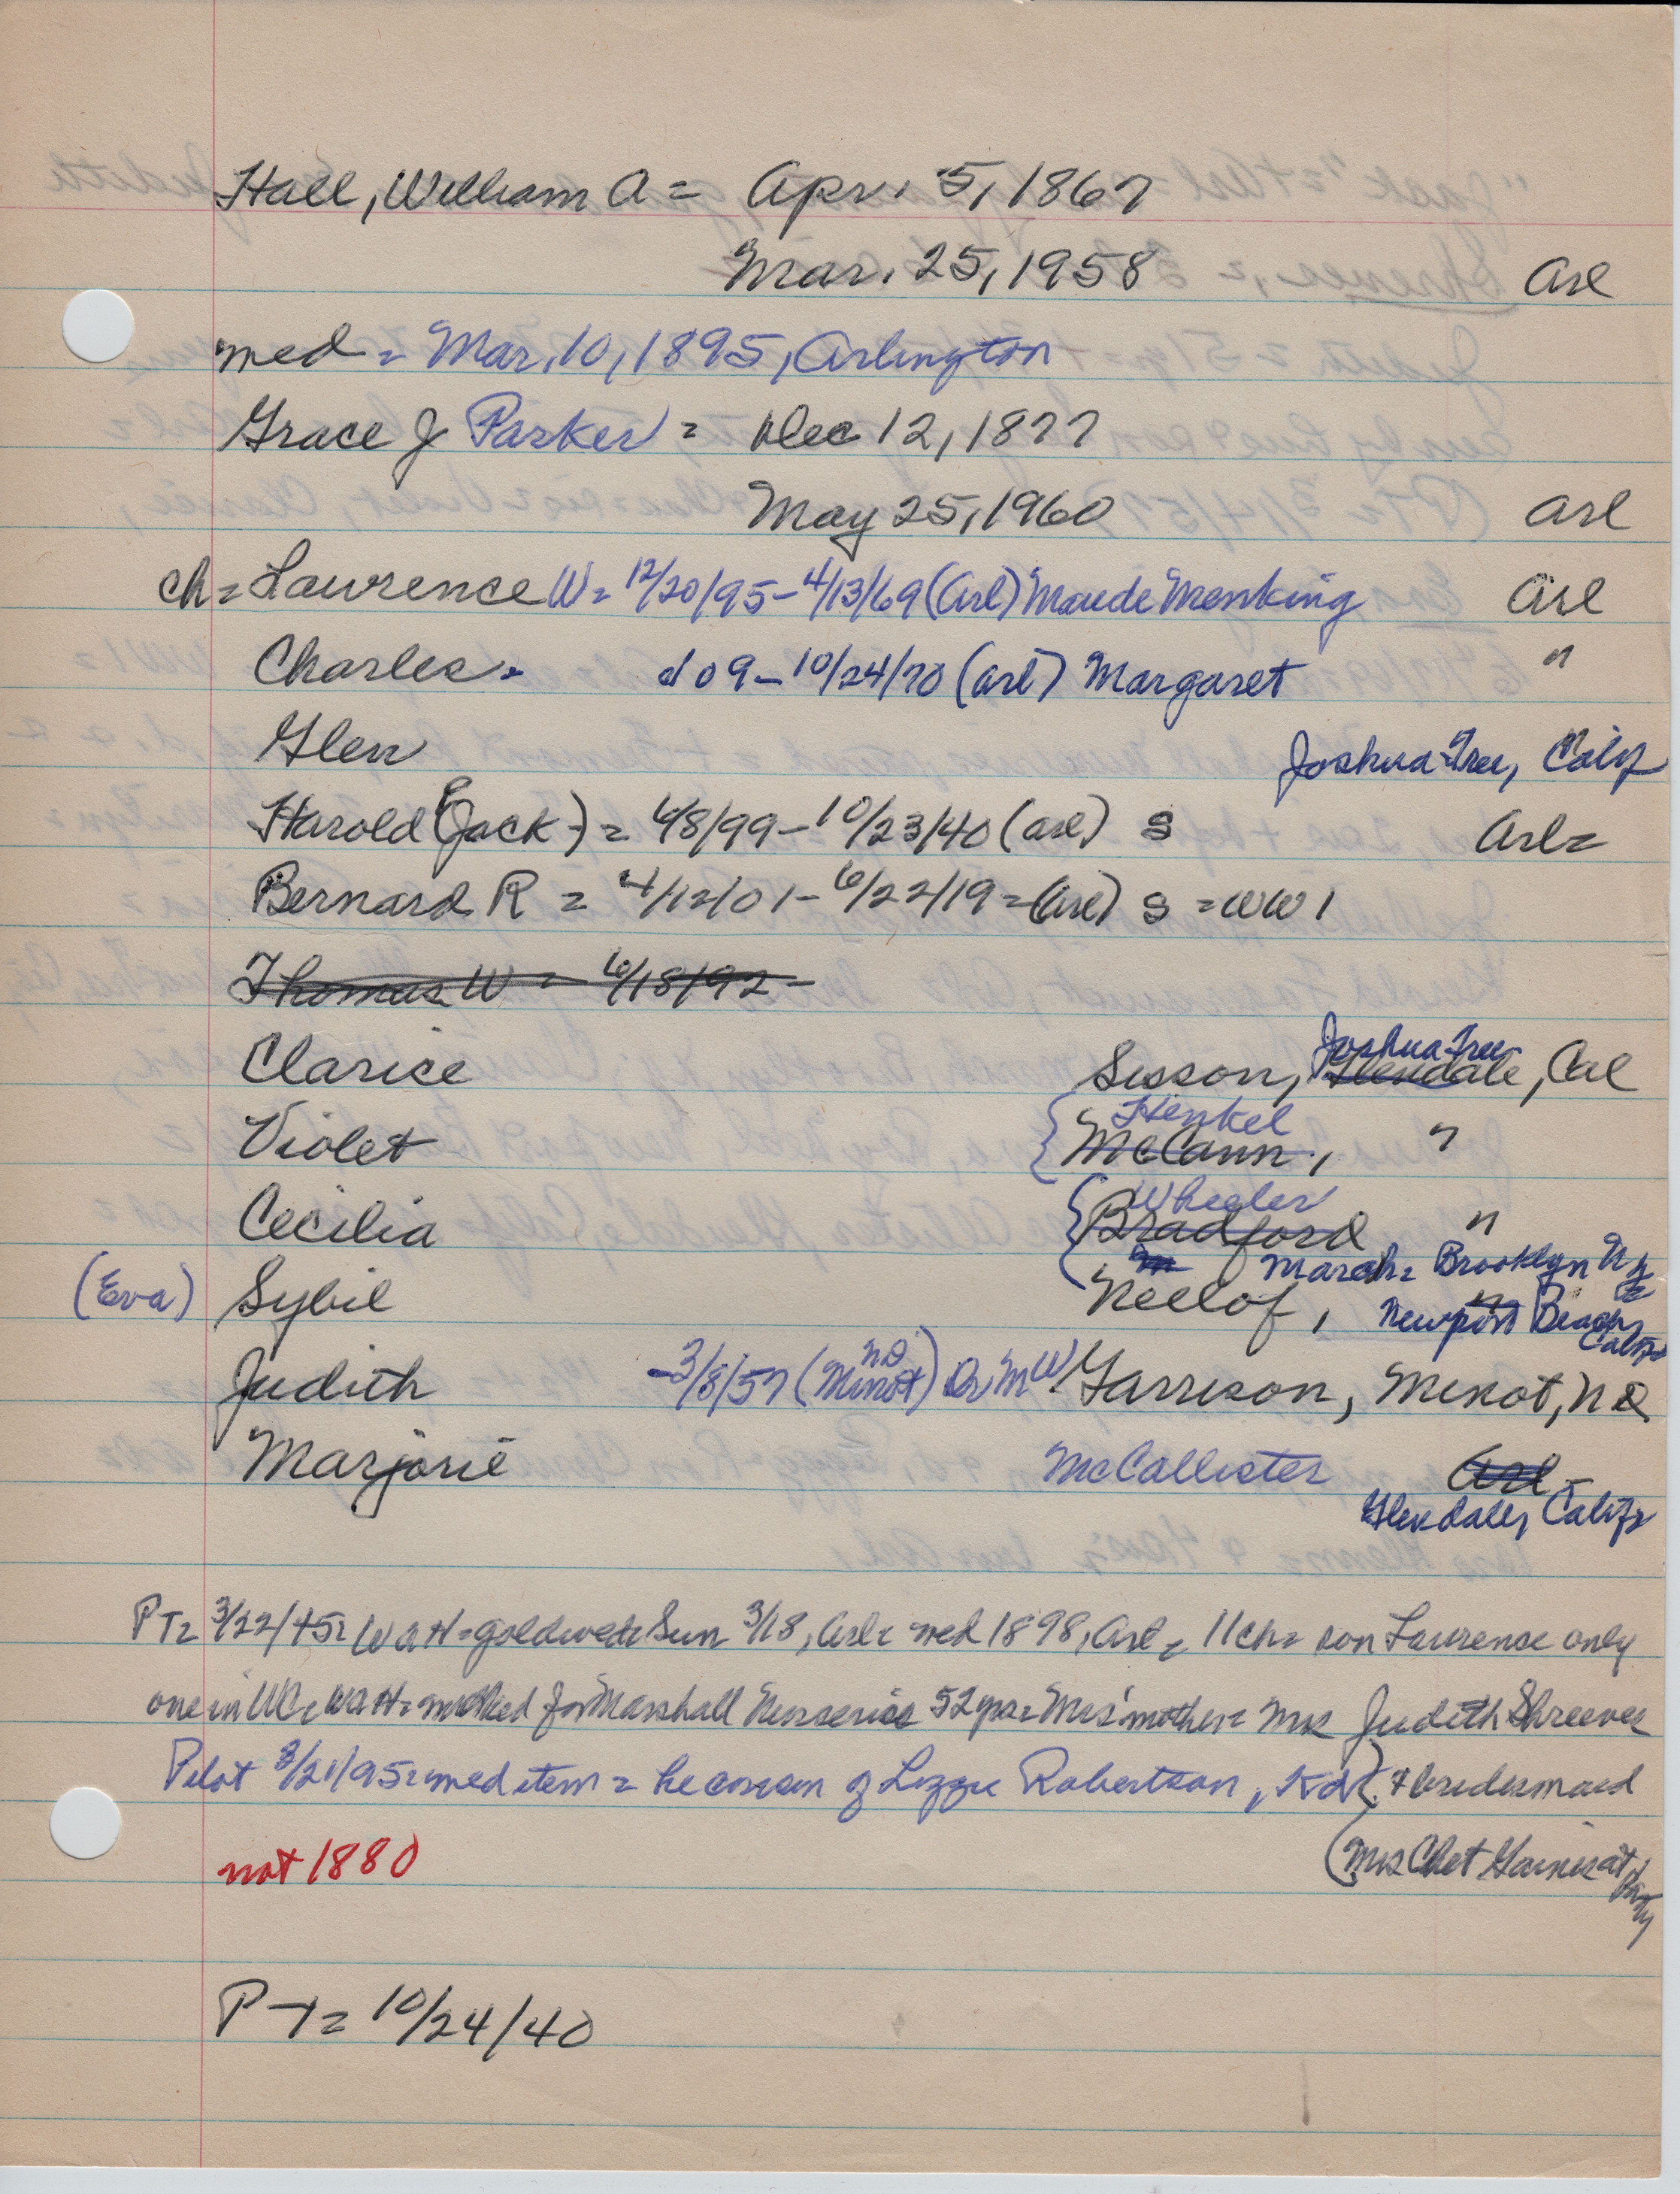 Hall, William A = Apr. 5, 1867
Mar. 25, 1958 Arl
med = Mar. 10, 1895, Arlington
Grace J Parker = Dec 12, 1877
May 25, 1960 Arl
ch = Lawrence W = 12/20/95 - 4/13/69 (Arl) Maude Menking Arl
Charles = d 09 - 10/24/70 (Arl) Margaret "
Glen Joshua Tree, Calif
Harold (Jack) = 4/8/99 - 10/23/40 (Arl) s Arl =
Bernard R = 4/12/01 - 6/22/19 = (Arl) s = WW 1
Thomas W = 6/18/92 -
Joshua Tree
Clarice Sisson, Glendale, Cal
Henkel
Violet McCann, "
Wheeler
Cecilia Bradford "
March = Brooklyn NY
(Eva) Sybil Neelof, " Newport Beach, Calif
Judith - 3/8/57 (Minot ND) Dr M W Garrison, Minot, ND
Marjorie McCallister Arl -
Glendale, Calif
PT = 3/22/45 = WAH = gold wed Sun 3/18, Arl = med 1898, Arl, 11 ch = son Lawrence only
one in WC = WAH = worked for Marshall Nurseries 52 yrs = Mrs' mother = Mrs Judith Shreeves
Pilot 3/21/95 = med item = he cousin of Lizzie Robertson, & bridesmaid
(Mrs Chet Gaines at party
not 1880
PT = 10/24/40